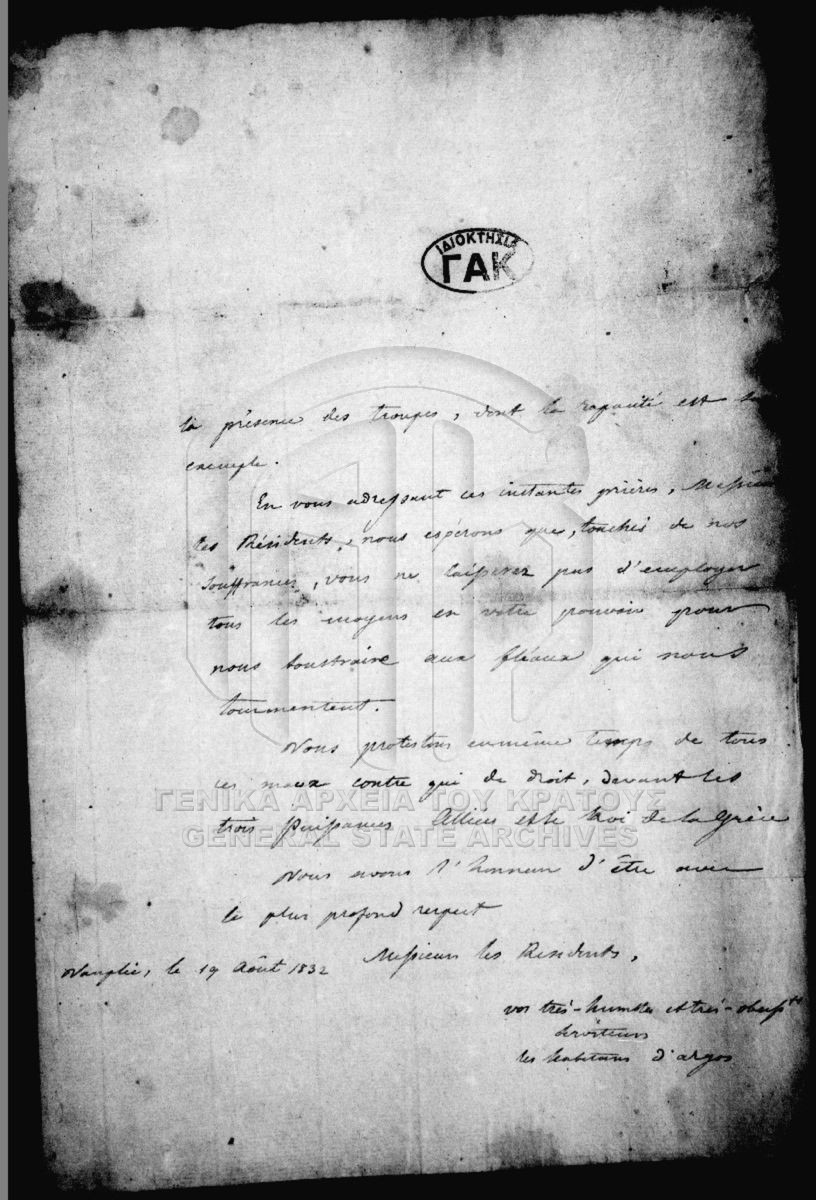 ΙΔΙΟΚΤΗΣΙΑ
ΓΑΚ
la présence des troupes, dont la rapacité est sa
exemple.
En vous adressant ces instantes prières, Messieu
les Résidents, nous espérons que, touchés de nos
souffrances, vous ne laisserez pas d'employer
tous les moyens en votre pouvoir pour
nous soustraire aux fléaux qui nous
tourmentent.
Nous protestons en même temps de tous
ces maux contre qui de droit, devant les
ΓΕΝΙΚΑ ΑΡΧΕΙΑ ΤΟΥ ΚΡΑΤΟΥΣ
trois Puissances Alliées et le Roi de la Grèce
GENERAL STATE ARCHIVES
Nous avons l'honneur d'être avec
le plus profond respect
Messieurs les Résidents,
Nauplie, le 19 Août 1832
vos très-humbles et très-obeiss.ts
serviteurs
les habitans d'argos